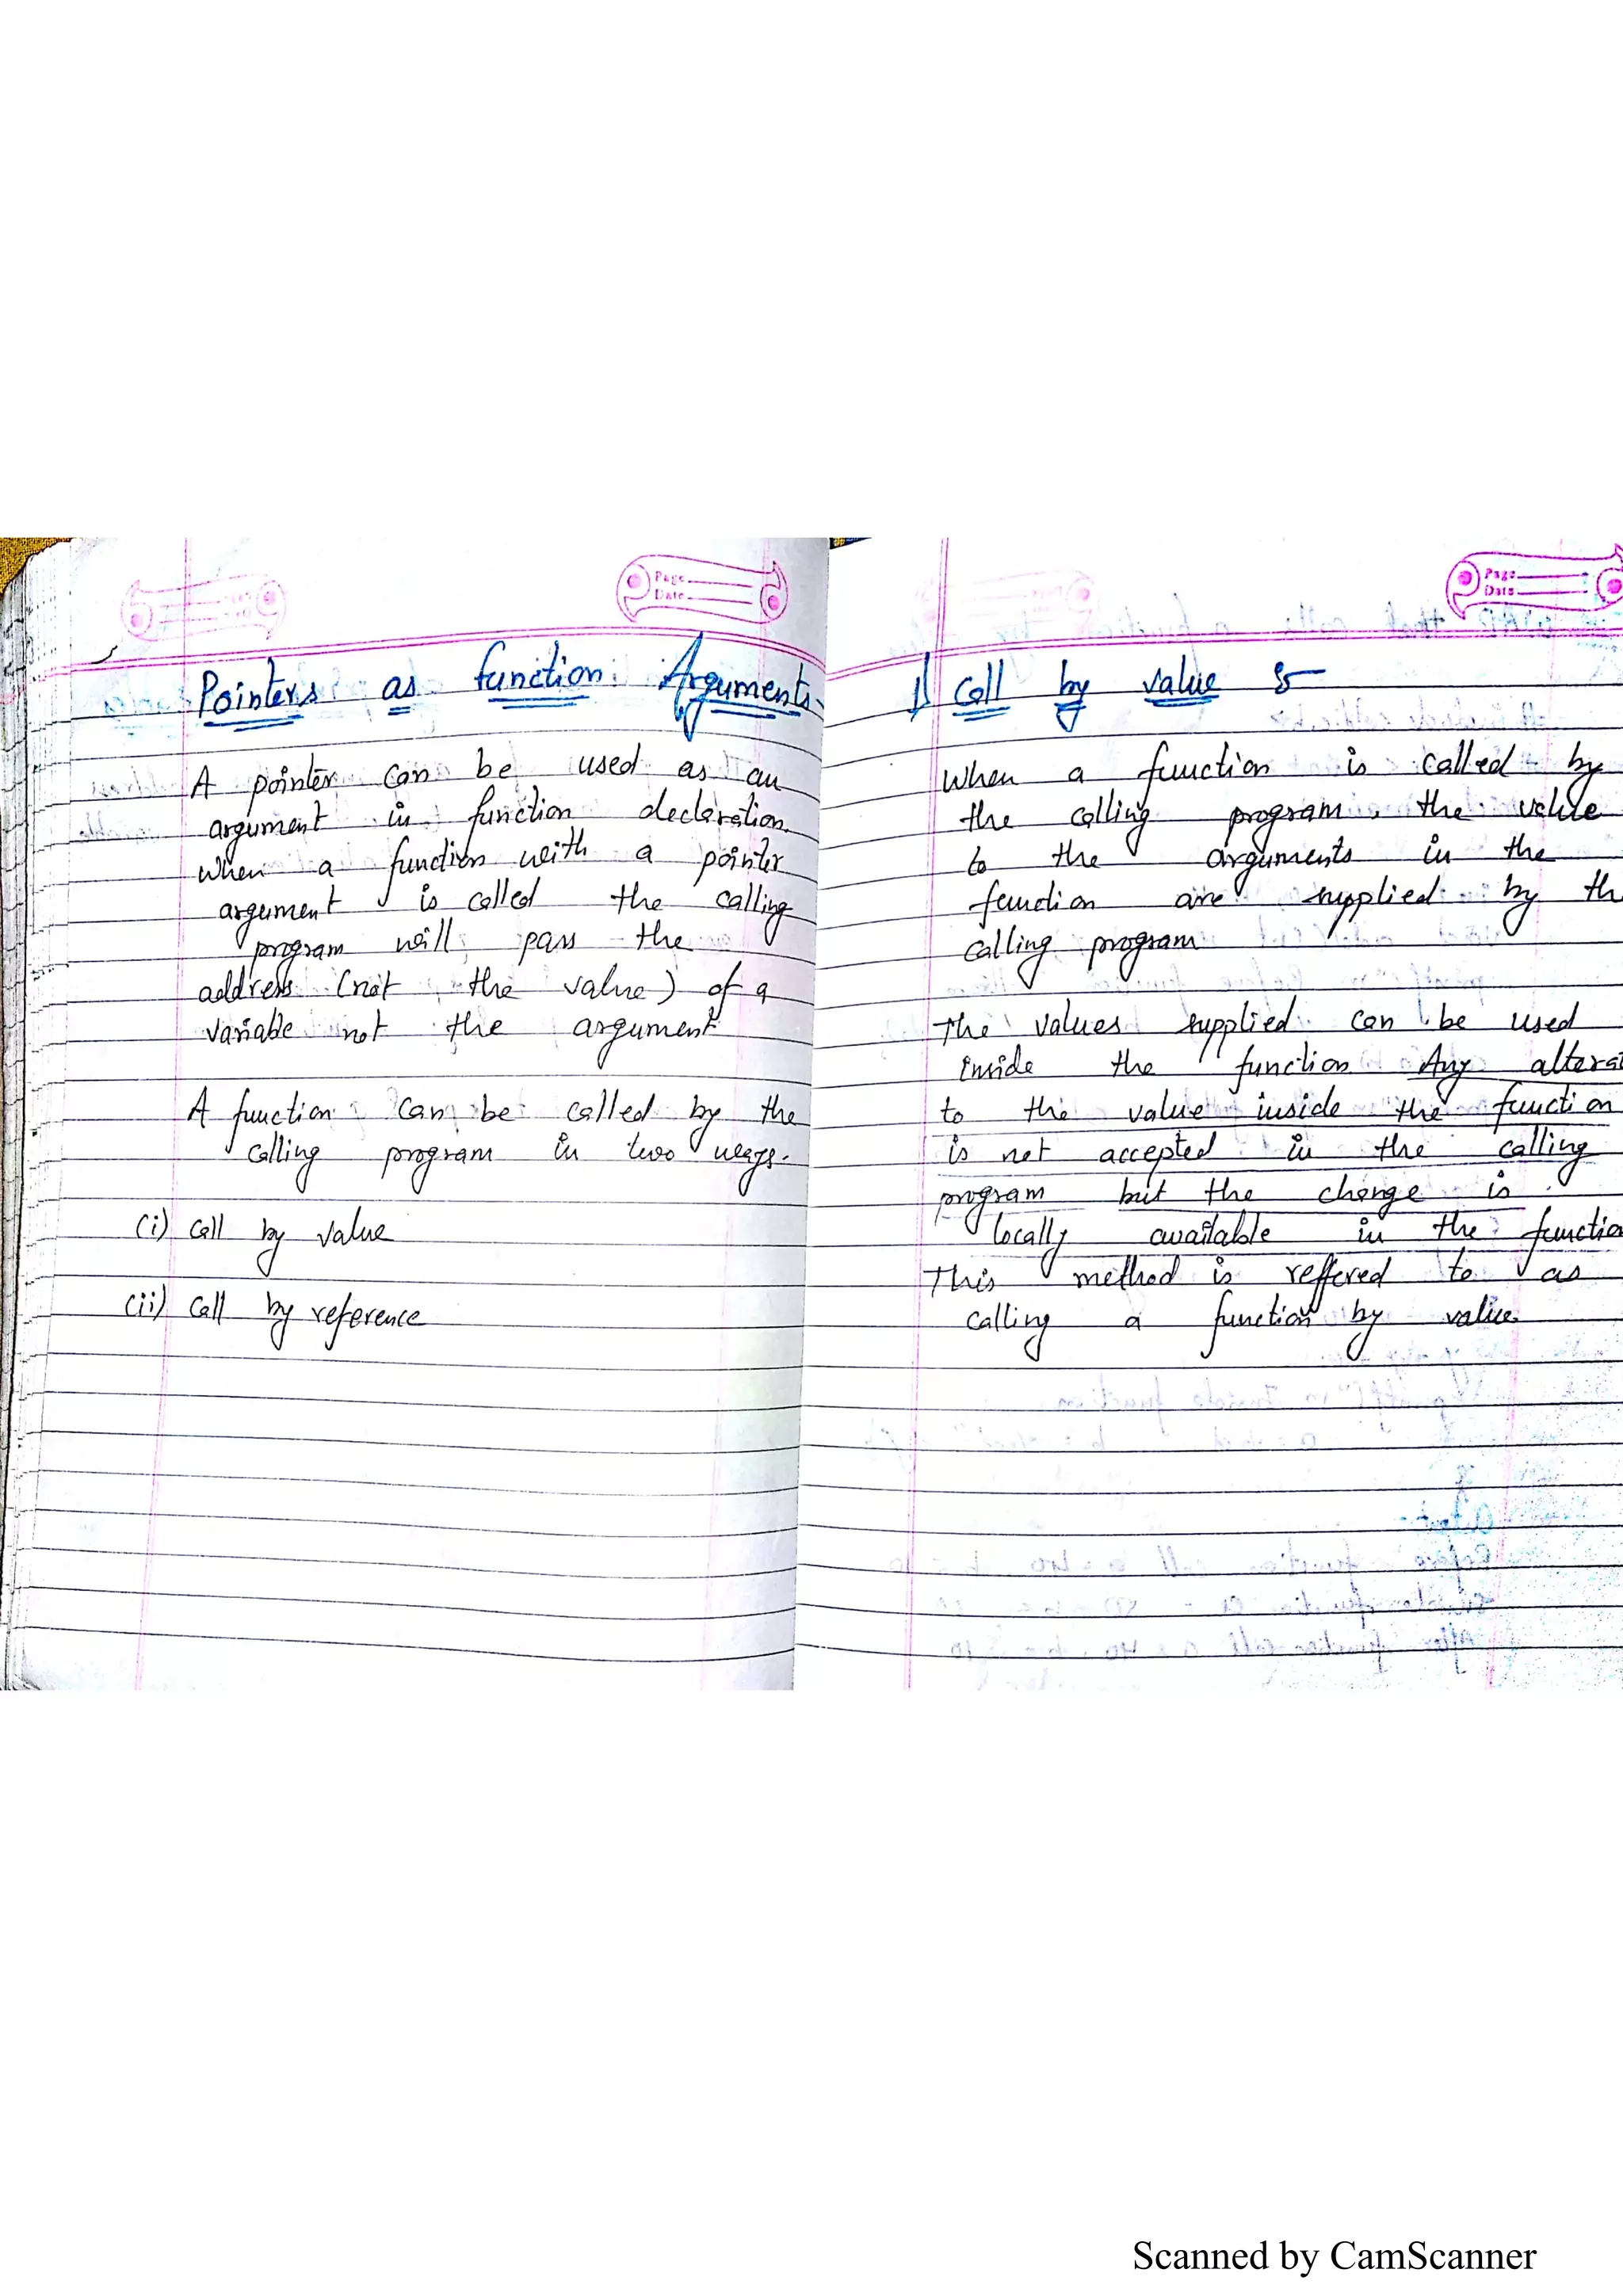 Page
Date
Pointers as function Arguments.
A pointer can be used as an
argument in function declaration.
When a function with a pointer
argument is called the calling
program will pass the
address (not the value) of a
variable not the argument
A function can be called by the
calling program in two ways.
(i) Call by value
(ii) Call by reference
Page
Date
1) Call by value :-
When a function is called by
the calling program, the value
to the arguments in the
function are supplied by th
calling program
The values supplied can be used
inside the function Any alterat
to the value inside the function
is not accepted in the calling
program but the change is
locally available in the function
This method is reffered to as
calling a function by value.
Scanned by CamScanner